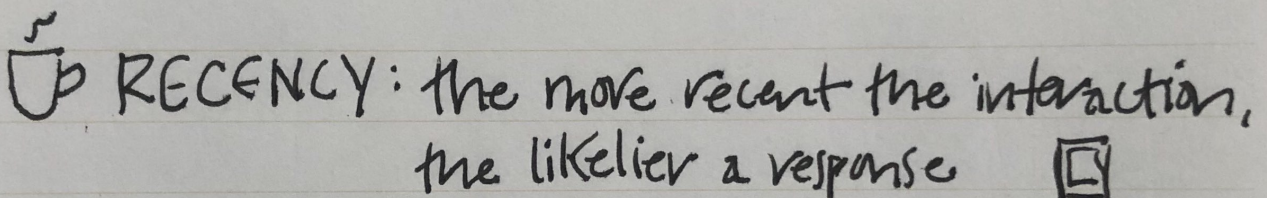 RECENCY: the more recent the interaction,
the likelier a response